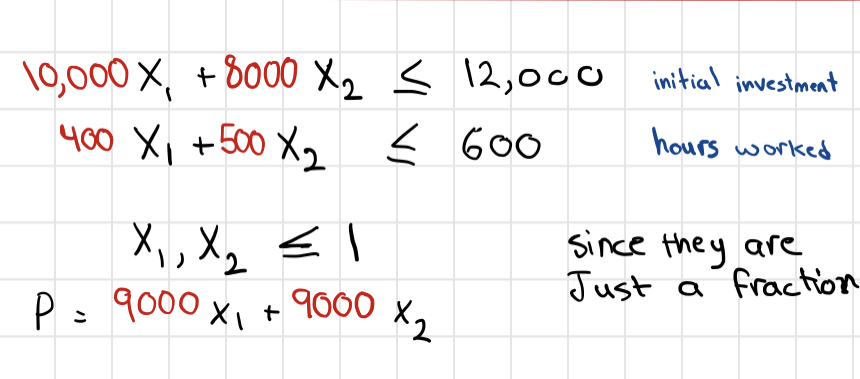 10,000 X₁ + 8000 X₂ ≤ 12,000 initial investment
400 X₁ + 500 X₂ ≤ 600 hours worked
X₁, X₂ ≤ 1 since they are
Just a fraction
P = 9000 X₁ + 9000 X₂